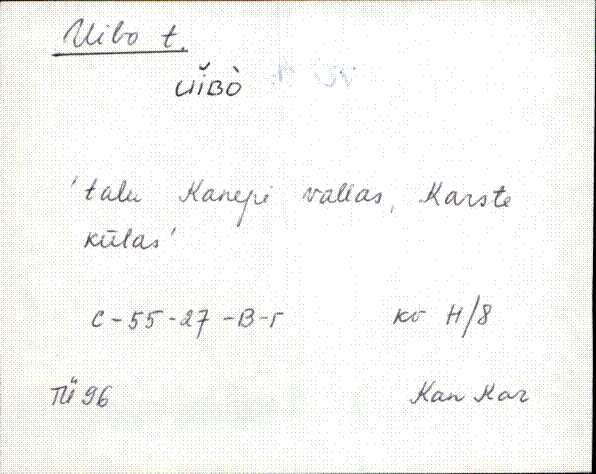 Uibo t.
uĭBò
'talu Kanepi vallas, Karste
külas'
C-55-27-B-г kv H/8
TÜ 96 Kan Kar